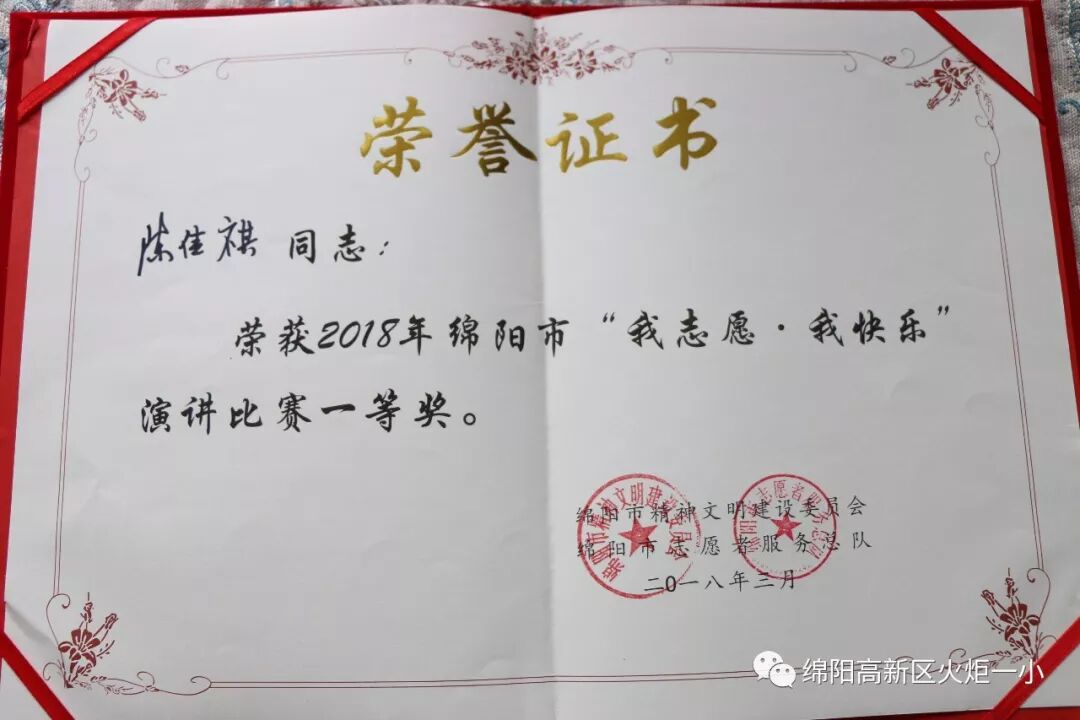 荣誉证书
陈佳祺 同志：
荣获2018年绵阳市“我志愿·我快乐”
演讲比赛一等奖。
绵阳市精神文明建设委员会
绵阳市志愿者服务总队
二0一八年三月
绵阳高新区火炬一小